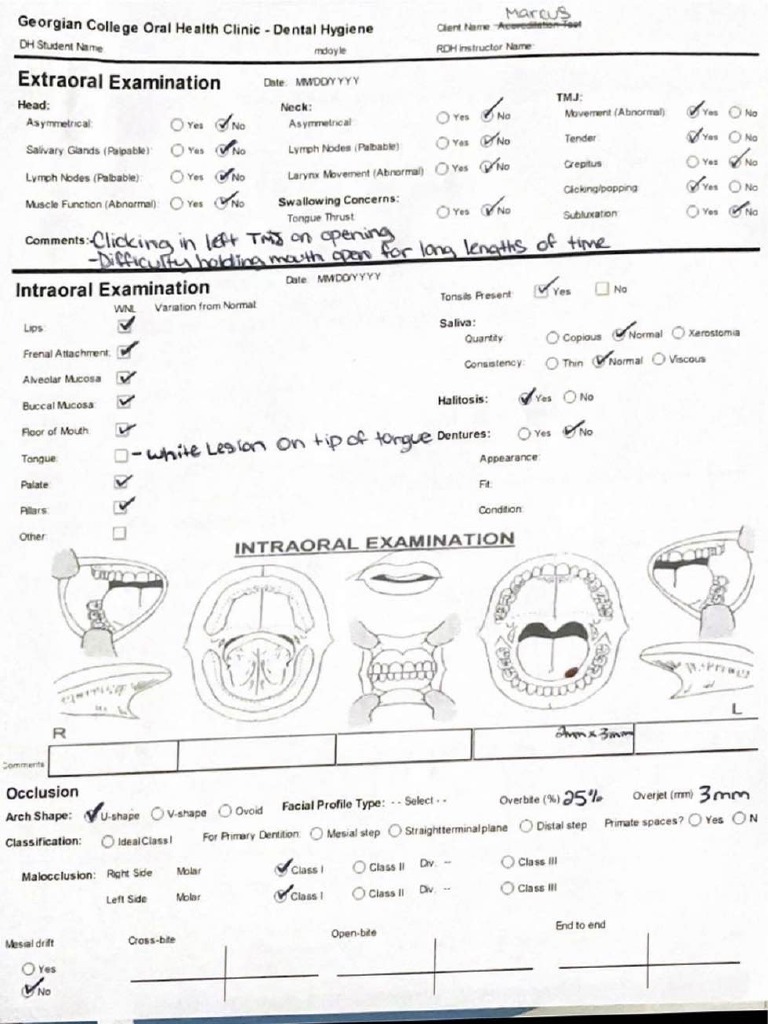 Georgian College Oral Health Clinic - Dental Hygiene
Client Name Marcus Accreditation Test
DH Student Name mdoyle RDH Instructor Name
Extraoral Examination Date: MM/DD/YYYY
Head: Neck: TMJ:
Asymmetrical: Yes No Asymmetrical Yes No Movement (Abnormal) Yes No
Salivary Glands (Palpable): Yes No Lymph Nodes (Palbable): Yes No Tender Yes No
Lymph Nodes (Palbable): Yes No Larynx Movement (Abnormal) Yes No Crepitus Yes No
Muscle Function (Abnormal): Yes No Swallowing Concerns: Clicking/popping Yes No
Tongue Thrust Yes No Subluxation: Yes No
Comments: -Clicking in left TMJ on opening
-Difficulty holding mouth open for long lengths of time
Intraoral Examination Date: MM/DD/YYYY Tonsils Present: Yes No
WNL Variation from Normal:
Lips: Saliva:
Quantity: Copious Normal Xerostomia
Frenal Attachment:
Consistency: Thin Normal Viscous
Alveolar Mucosa
Buccal Mucosa: Halitosis: Yes No
Floor of Mouth:
Tongue: - white Lesion on tip of tongue Dentures: Yes No
Palate: Appearance:
Pillars: Fit:
Other: Condition:
INTRAORAL EXAMINATION
R L
Comments 2mm x 3mm
Occlusion
Arch Shape: U-shape V-shape Ovoid Facial Profile Type: - - Select - - Overbite (%) 25% Overjet (mm) 3mm
Classification: Ideal Class I For Primary Dentition: Mesial step Straight terminal plane Distal step Primate spaces? Yes N
Malocclusion: Right Side Molar Class I Class II Div. -- Class III
Left Side Molar Class I Class II Div. -- Class III
Mesial drift Cross-bite Open-bite End to end
Yes
No